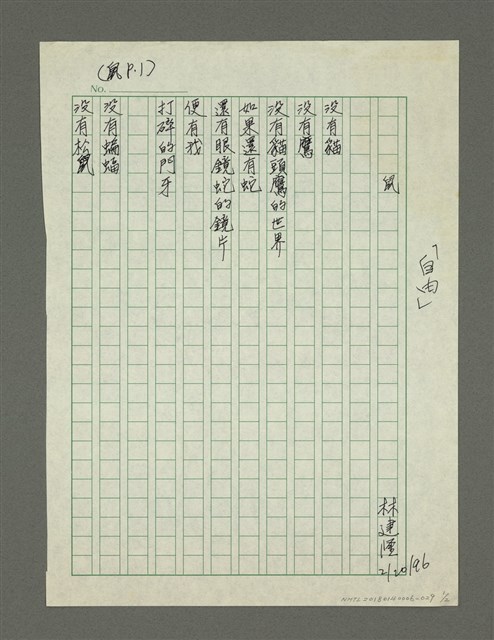 (鼠 P.1)
No.
「自由」
鼠
林建隆 2/20/96
沒有貓
沒有鷹
沒有貓頭鷹的世界
如果還有蛇
還有眼鏡蛇的鏡片
便有我
打碎的門牙
沒有蝙蝠
沒有松鼠
1/2